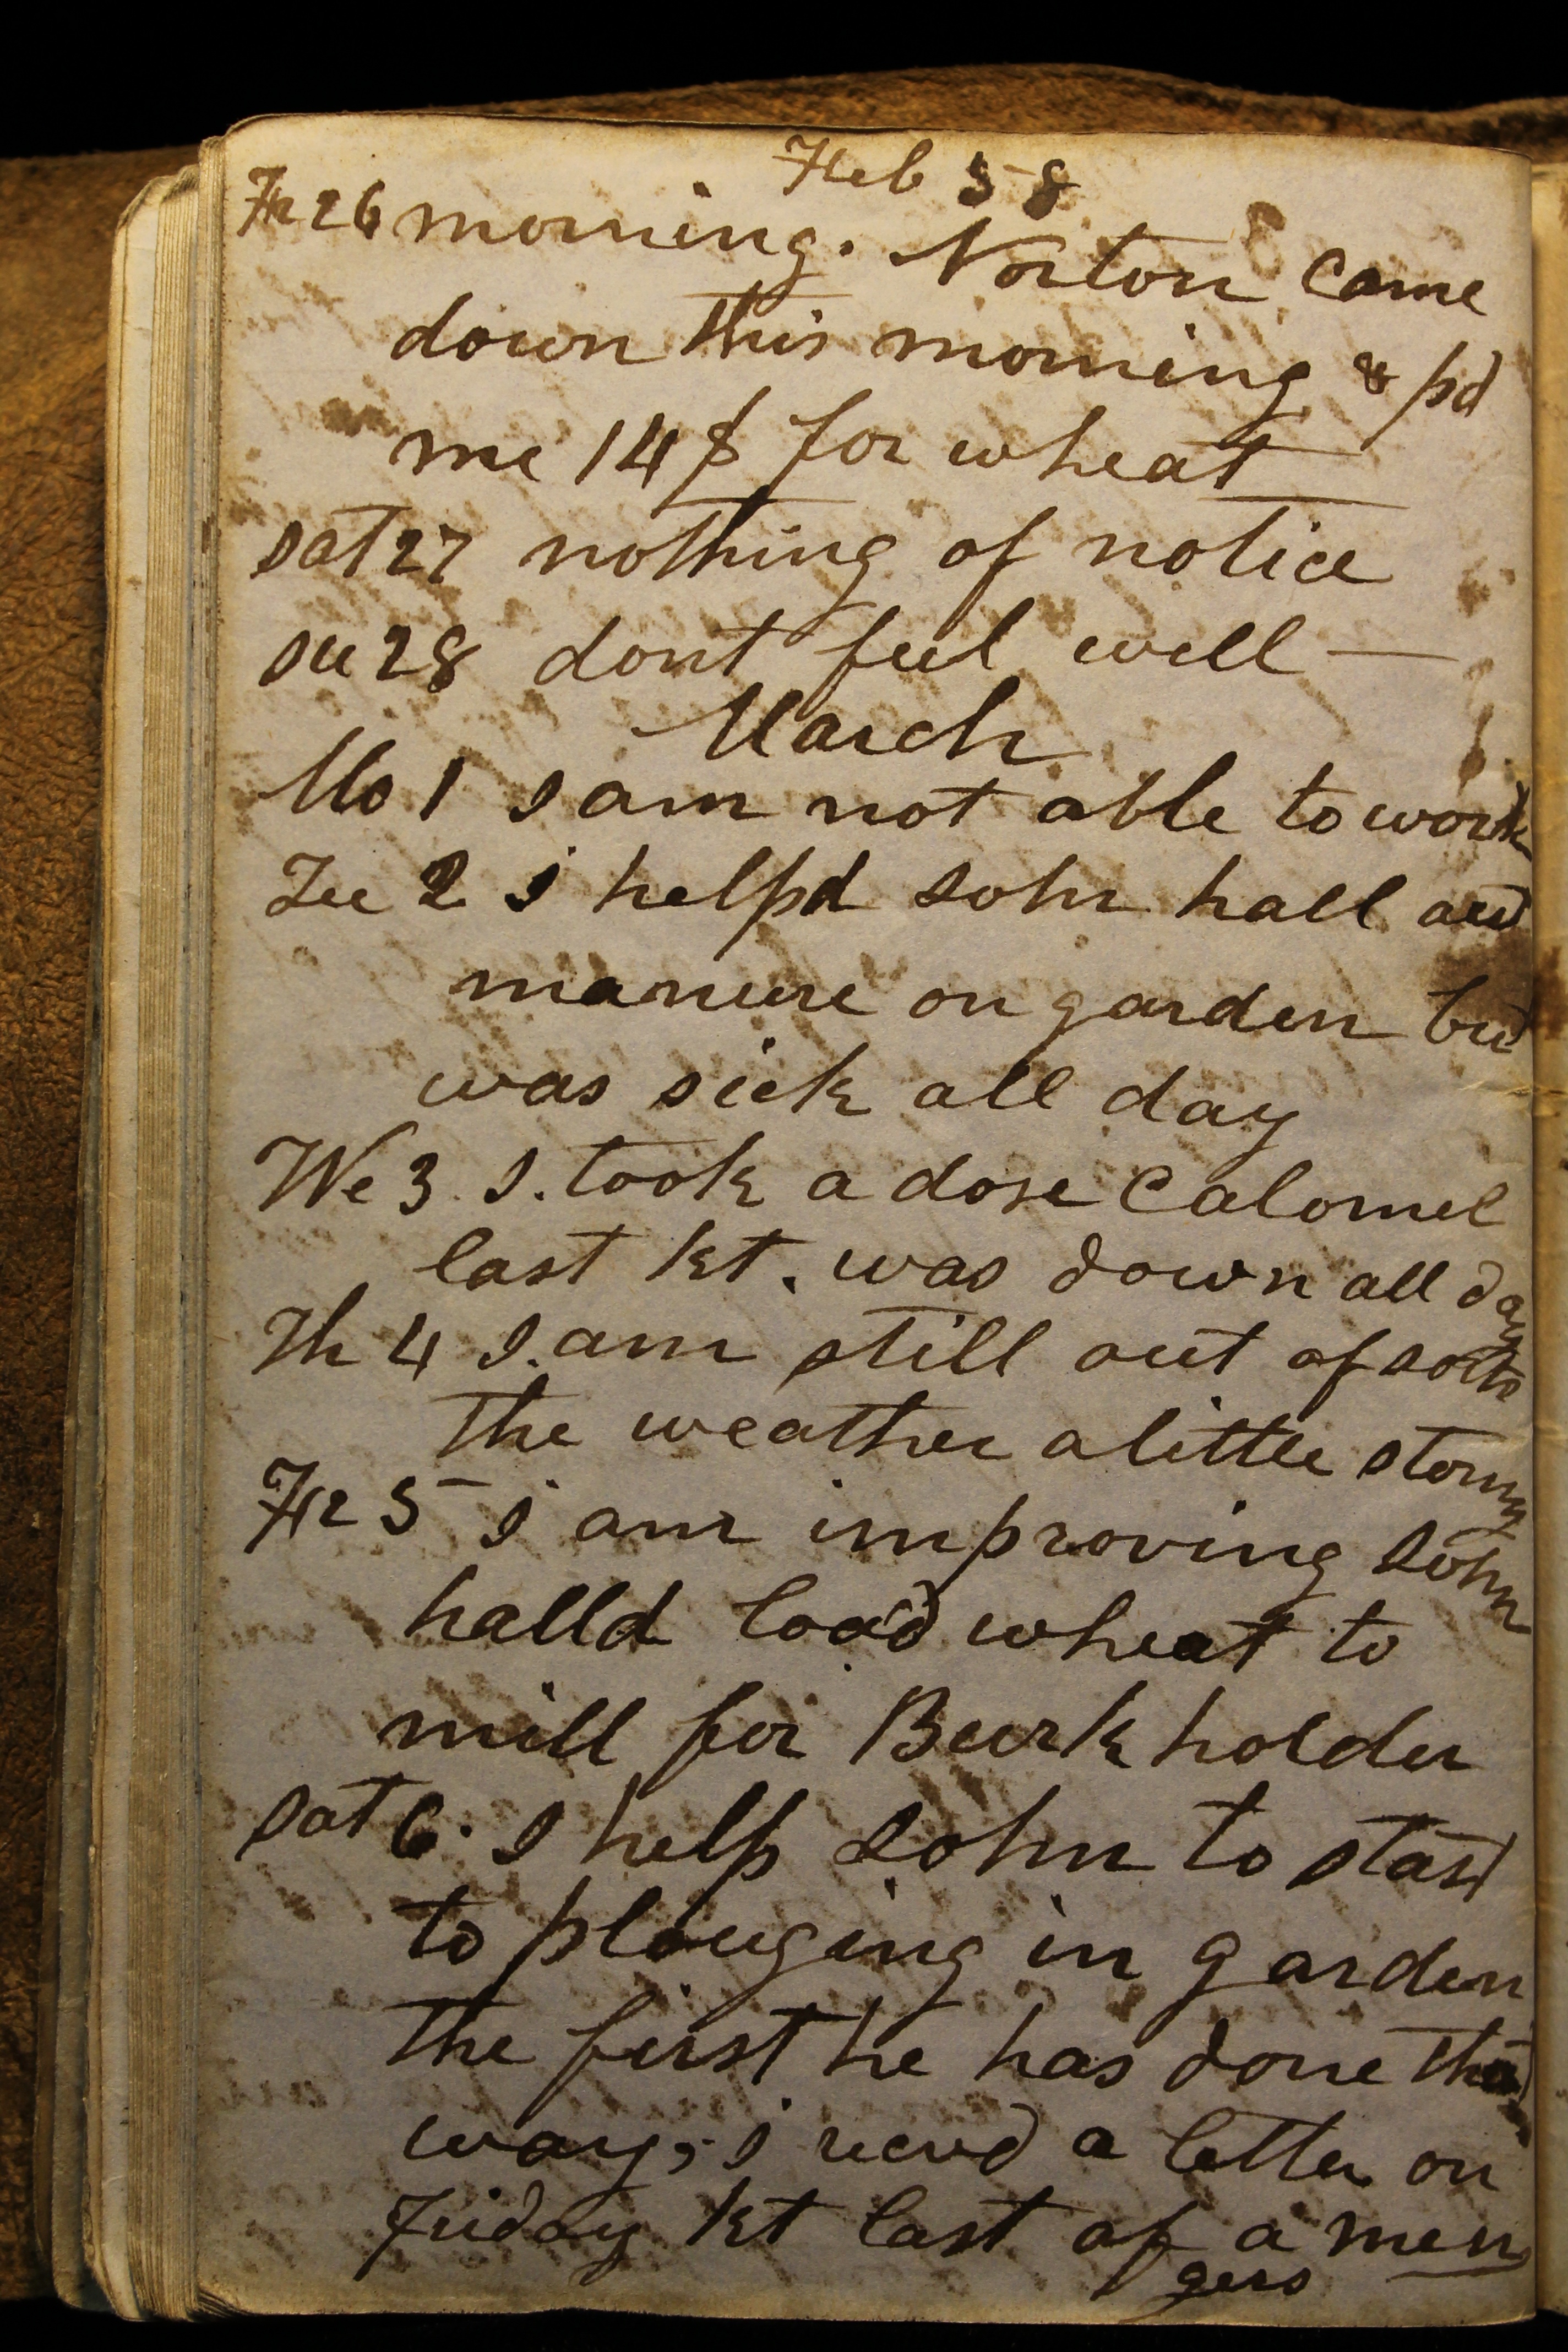 Feb 58
Fr 26 morning. Norton came
down this morning & pd
me 14$ for wheat
Sat 27 nothing of notice
Su 28 dont feel well —
March
Mo 1 I am not able to work
Tu 2 I helpd John hall out
manure on garden but
was sick all day
We 3. I. took a dose Calomel
last nt. was down all day
Th 4 I. am still out of sorts
the weather a little stormy
Fr 5 I am improving John
halld load wheat to
mill for Burkholder
Sat 6. I help John to start
to plouging in garden
the first he has done that
way, I recvd a letter on
Friday nt last of a men
gers